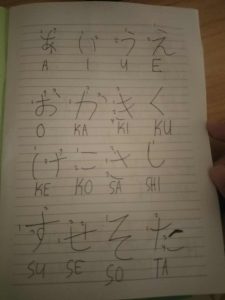 あ い う え
A I U E
お か き く
O KA KI KU
け こ さ し
KE KO SA SHI
す せ そ た
SU SE SO TA